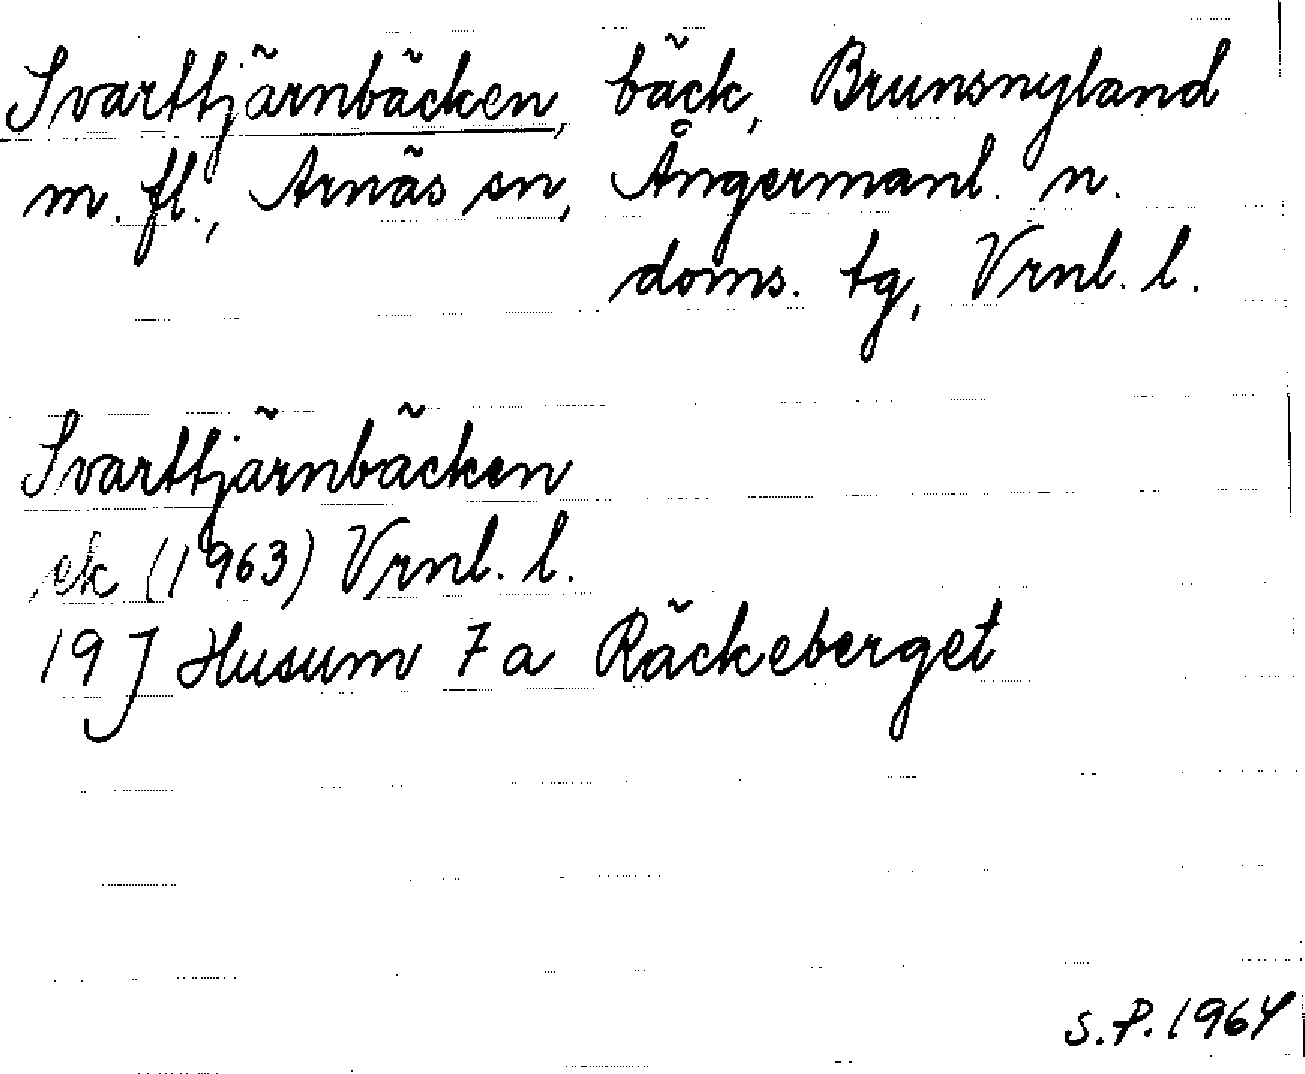 Svarttjärnbäcken, bäck, Brunsnyland
m. fl., Arnäs sn, Ångermanl. n.
doms. tg, Vrnl. l.
Svarttjärnbäcken
ek (1963) Vrnl. l.
19 J Husum 7 a Räckeberget
S.P. 1964